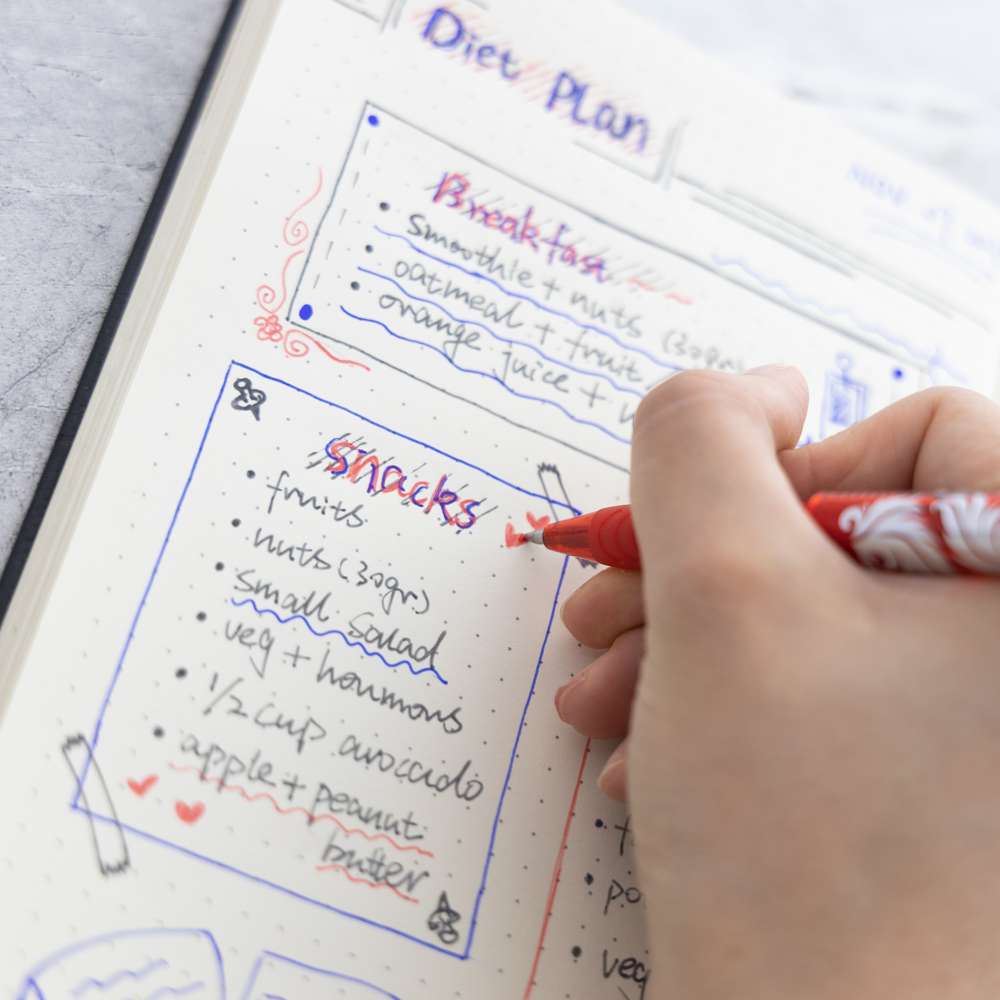 Diet Plan
Breakfast
• smoothie + nuts (30gr)
• oatmeal + fruit
• orange juice +
Snacks
• fruits
• nuts (30gr)
• small salad
• veg + hoummous
• 1/2 cup avoccado
• apple + peanut
butter
• po
• veg